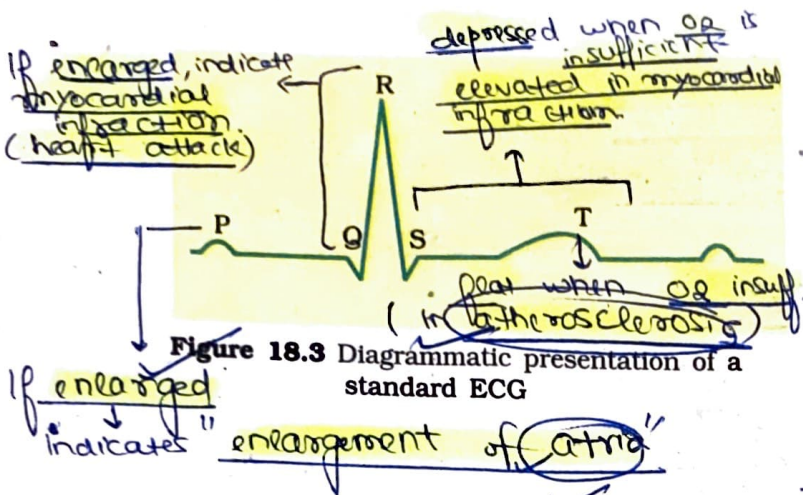 If enlarged, indicate
myocardial
infraction.
(heart attack)
depressed when O2 is
insufficient
elevated in myocardial
infraction.
R
P
Q
S
T
flat when O2 insuff.
( in atherosclerosis )
Figure 18.3 Diagrammatic presentation of a
standard ECG
If enlarged
indicates " enlargement of atria "